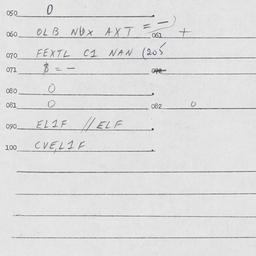 050 0
060 OLB NUX AXT = - 061 +
070 FEXTL C1 NAN (205
071 $ = -
080 0
081 0 082 0
090 EL1F // ELF
100 CVE,L1F